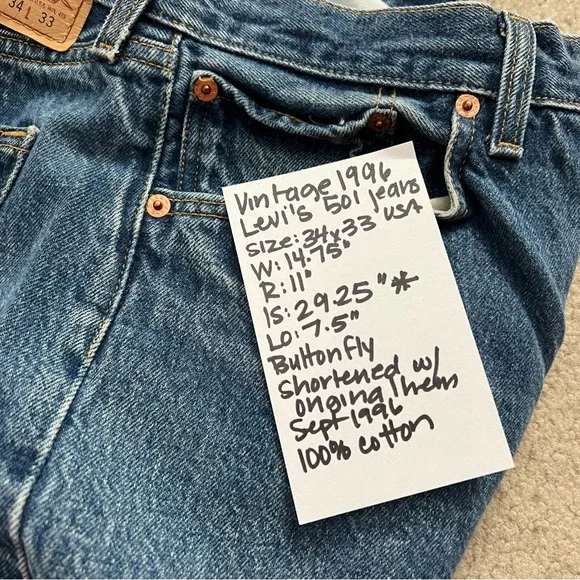 34 L 33
Vintage 1996
Levi's 501 Jeans
Size: 34x33 USA
W: 14.75"
R: 11"
IS: 29.25" *
LO: 7.5"
Buttonfly
Shortened w/
original hem
Sept 1996
100% cotton